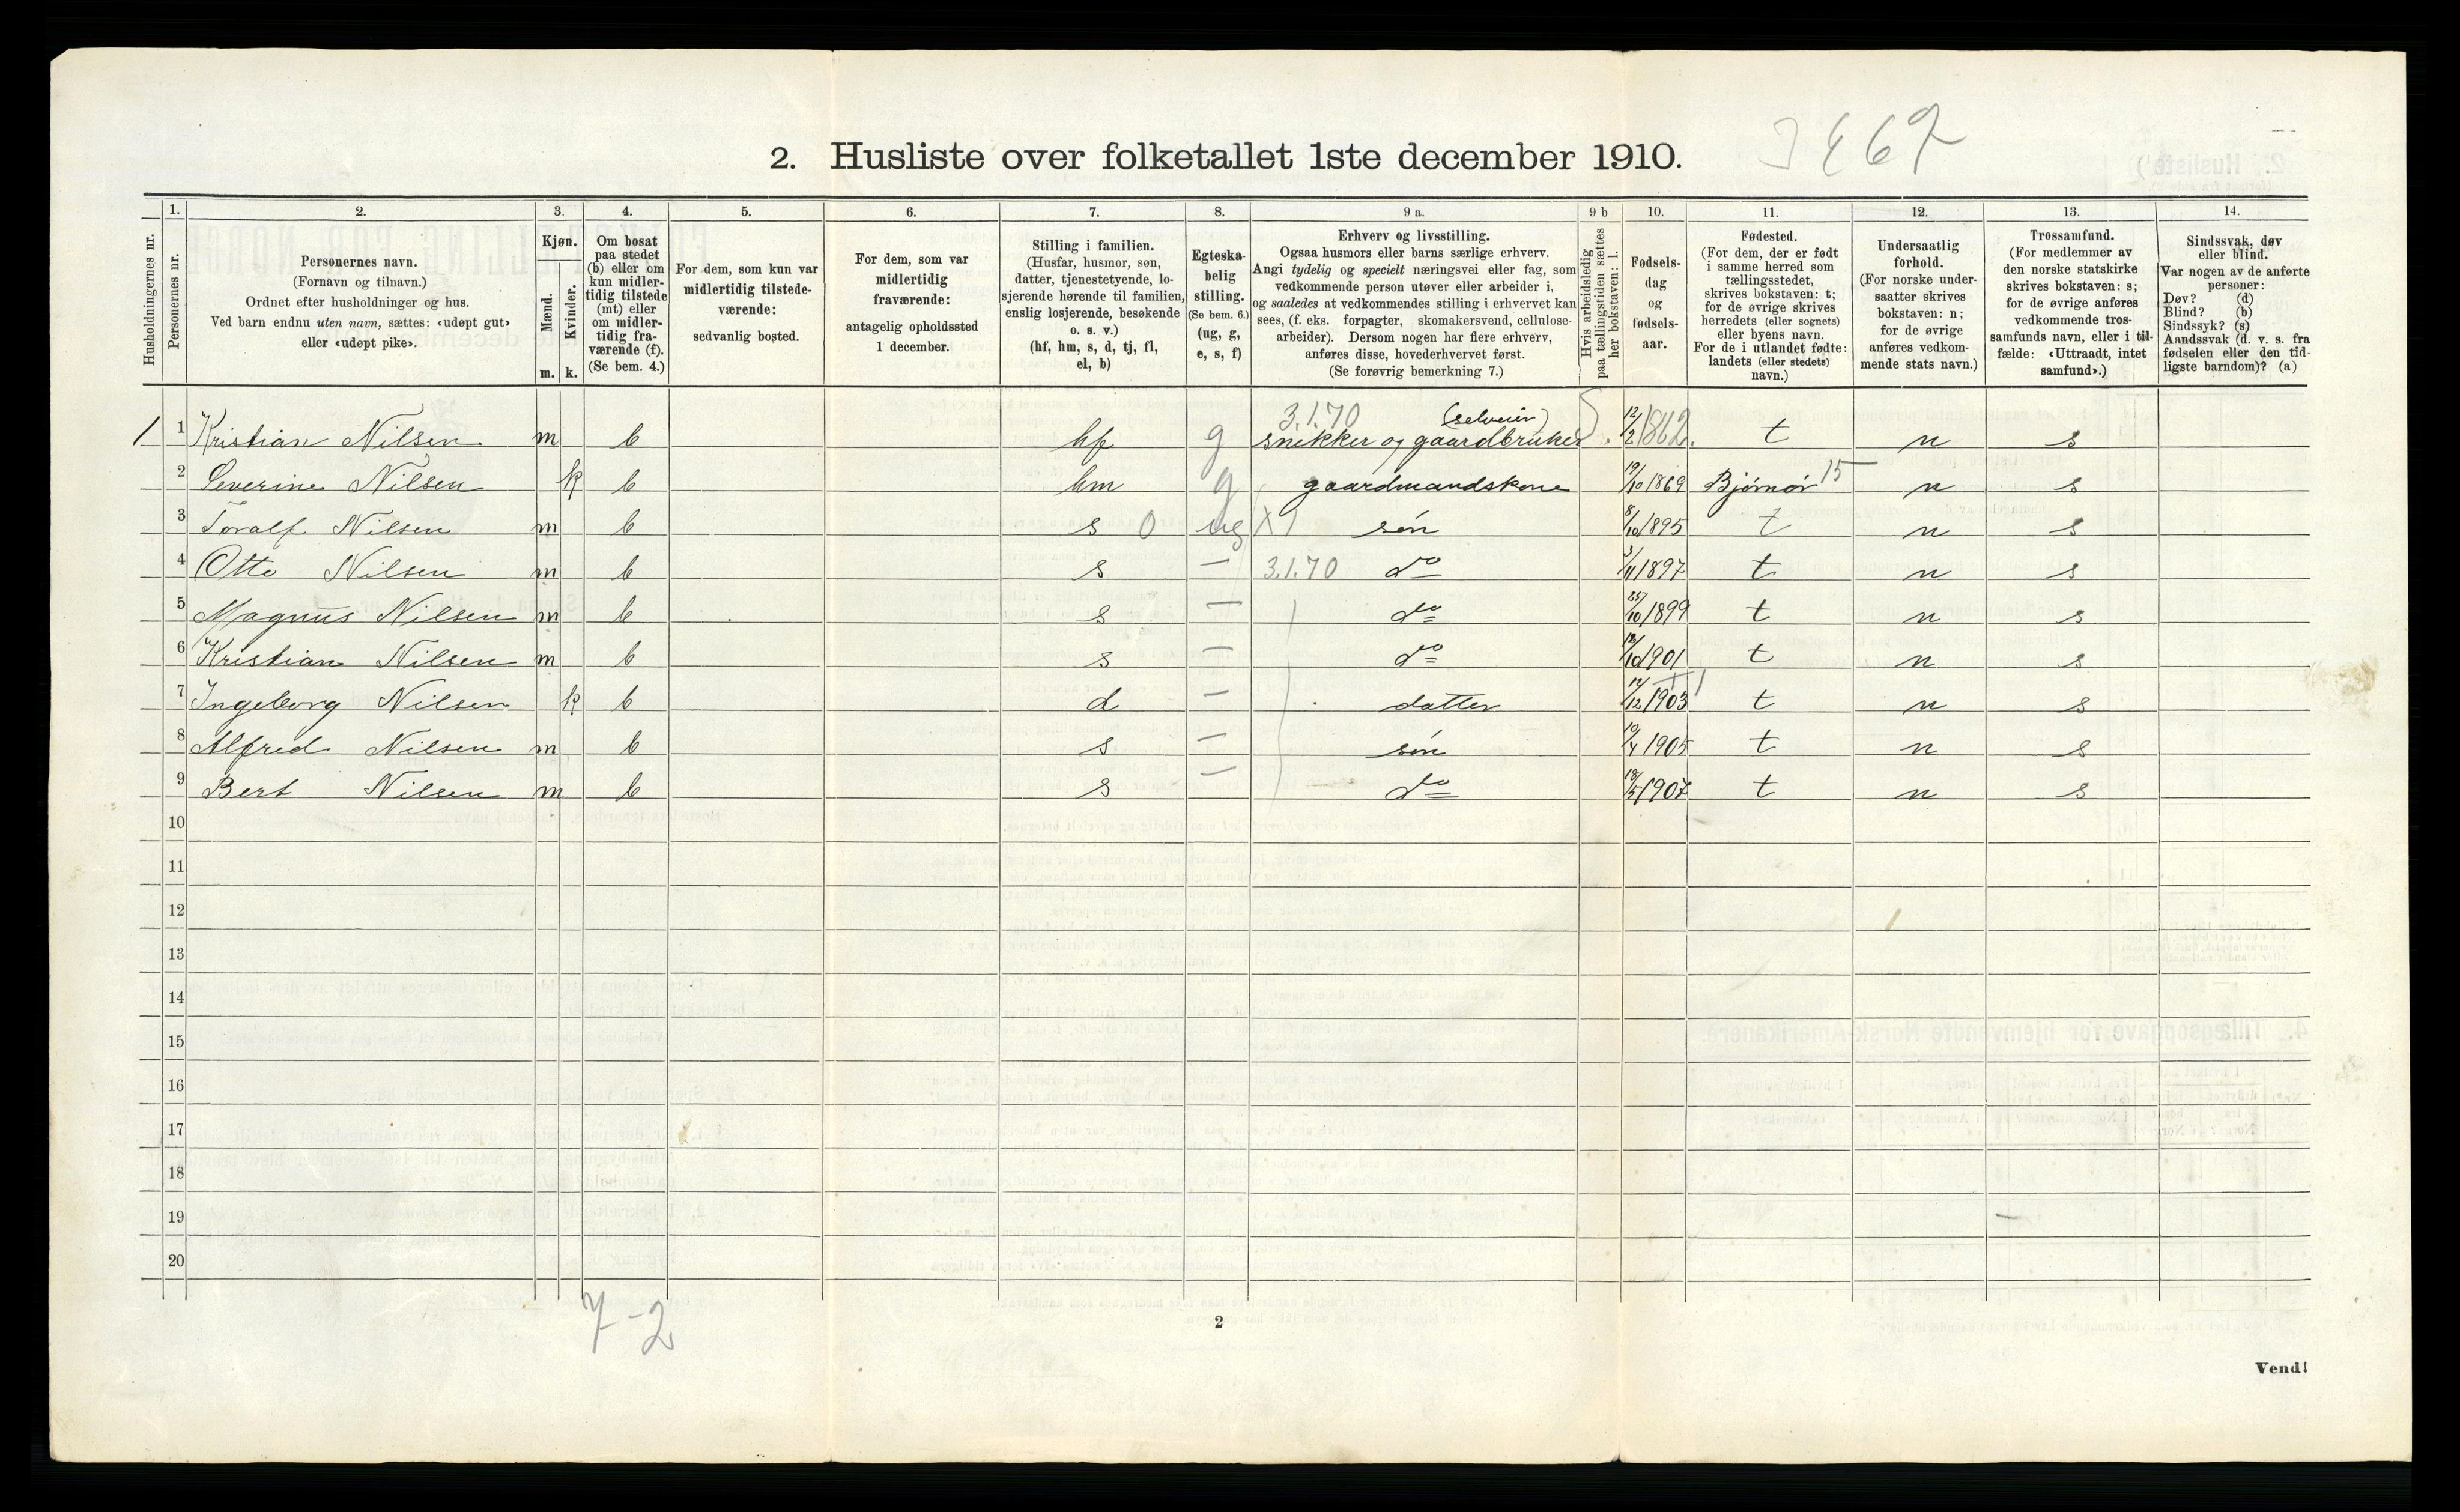 2. Husliste over folketallet 1ste december 1910.
Husholdningernes nr.
1.
Personernes nr.
2.
Personernes navn.
(Fornavn og tilnavn.)
Ordnet efter husholdninger og hus.
Ved barn endnu uten navn, sættes: «udøpt gut»
eller «udøpt pike».
3.
Kjøn.
Mænd.
Kvinder.
m. k.
4.
Om bosat
paa stedet
(b) eller om
kun midler-
tidig tilstede
(mt) eller
om midler-
tidig fra-
værende (f).
(Se bem. 4.)
5.
For dem, som kun var
midlertidig tilstede-
værende:
sedvanlig bosted.
6.
For dem, som var
midlertidig
fraværende:
antagelig opholdssted
1 december.
7.
Stilling i familien.
(Husfar, husmor, søn,
datter, tjenestetyende, lo-
sjerende hørende til familien,
enslig losjerende, besøkende
o. s. v.)
(hf, hm, s, d, tj, fl,
el, b)
8.
Egteska-
belig
stilling.
(Se bem. 6.)
(ug, g,
e, s, f)
9 a.
Erhverv og livsstilling.
Ogsaa husmors eller barns særlige erhverv.
Angi tydelig og specielt næringsvei eller fag, som
vedkommende person utøver eller arbeider i,
og saaledes at vedkommendes stilling i erhvervet kan
sees, (f. eks. forpagter, skomakersvend, cellulose-
arbeider). Dersom nogen har flere erhverv,
anføres disse, hovederhvervet først.
(Se forøvrig bemerkning 7.)
9 b
Hvis arbeidsledig
paa tællingstiden sættes
her bokstaven: l.
10.
Fødsels-
dag
og
fødsels-
aar.
11.
Fødested.
(For dem, der er født
i samme herred som
tællingsstedet,
skrives bokstaven: t;
for de øvrige skrives
herredets (eller sognets)
eller byens navn.
For de i utlandet fødte:
landets (eller stedets)
navn.)
12.
Undersaatlig
forhold.
(For norske under-
saatter skrives
bokstaven: n;
for de øvrige
anføres vedkom-
mende stats navn.)
13.
Trossamfund.
(For medlemmer av
den norske statskirke
skrives bokstaven: s;
for de øvrige anføres
vedkommende tros-
samfunds navn, eller i til-
fælde: «Uttraadt, intet
samfund».)
14.
Sindssvak, døv
eller blind.
Var nogen av de anførte
personer:
Døv? (d)
Blind? (b)
Sindssyk? (s)
Aandssvak (d. v. s. fra
fødselen eller den tid-
ligste barndom)? (a)
3.1.70 (selveier)
1 1 Kristian Nilsen m b hf g snikker og gaardbruker 12/2 1862. t n s
2 Severine Nilsen k b hm g gaardmandskone 19/10 1869 Bjørnør 15 n s
3 Toralf Nilsen m b s 0 ug X1 søn 8/10 1895 t n s
4 Otto Nilsen m b s — 3.1.70 do 3/11 1897 t n s
5 Magnus Nilsen m b s — do 25/10 1899 t n s
6 Kristian Nilsen m b s — do /10 1901 t n s
7 Ingeborg Nilsen k b d — datter 12/12 1903 t n s
8 Alfred Nilsen m b s — søn 10/4 1905 t n s
9 Bert Nilsen m b s — do 18/5 1907 t n s
10
11
12
13
14
15
16
17
18
19
20
7-2
2
Vend!